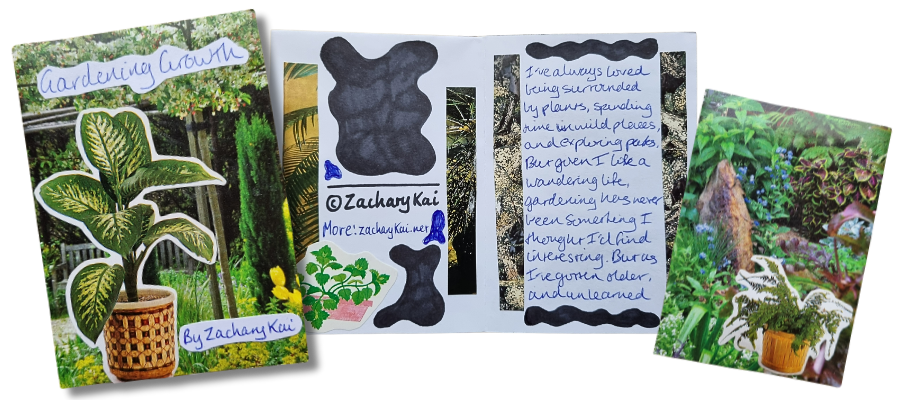 Gardening Growth
By Zachary Kai
© Zachary Kai
More! zacharykai.net
I've always loved
being surrounded
by plants, spending
time in wild places,
and exploring parks.
But given I like a
wandering life,
gardening has never
been something I
thought I'd find
interesting. But as
I've gotten older,
and unlearned